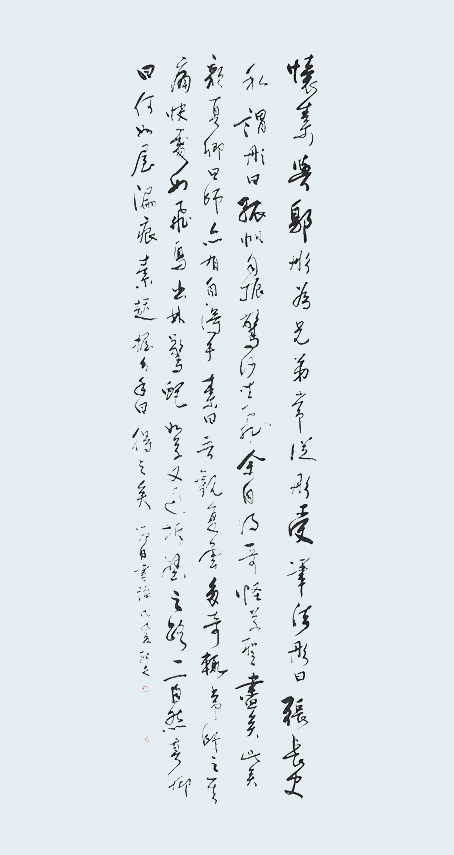 懷素與鄔彤為兄弟常從彤受筆法彤曰張長史
私謂彤曰孤帆自振驚沙坐飛余自得奇怪草聖盡矣此矣
顏真卿曰師亦有自得乎素曰吾觀夏雲多奇輒常師之其
痛快處如飛鳥出林驚蛇入草又遇坼壁之路一一自然真卿
曰何如屋漏痕素起握公手曰得之矣